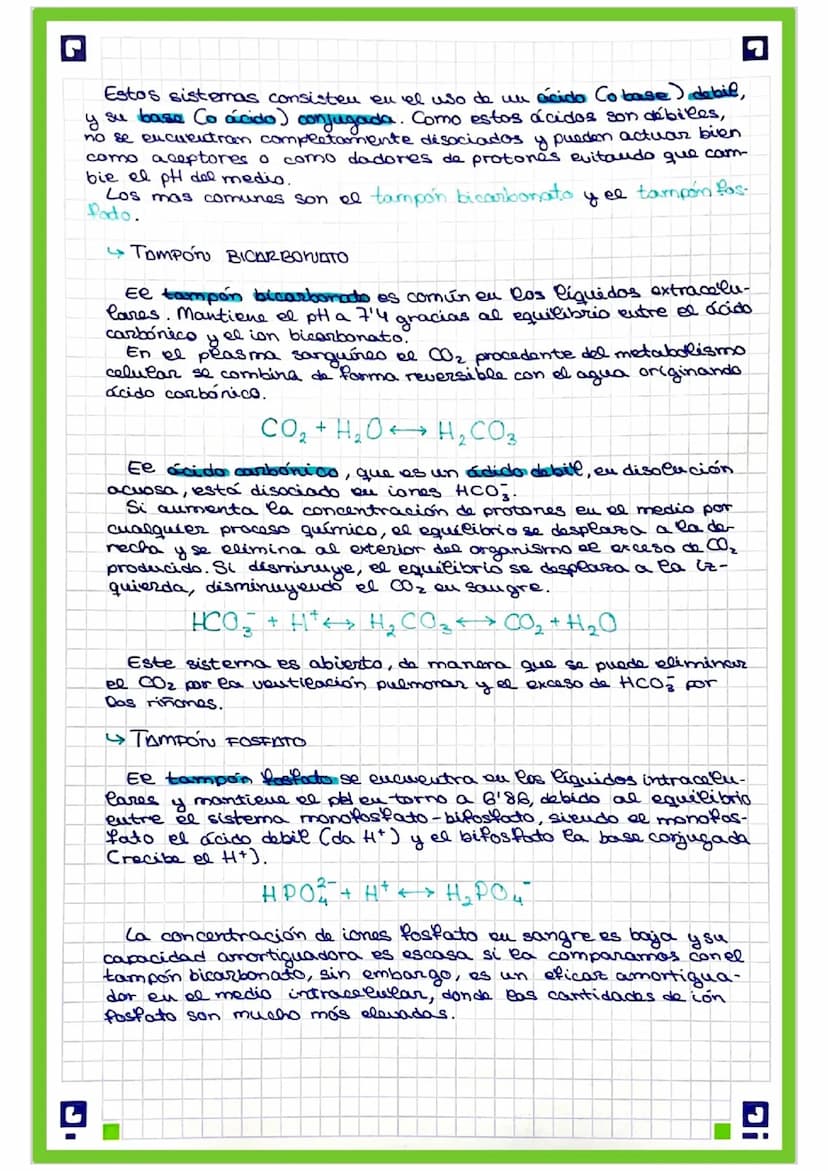 Estos sistemas consisten en el uso de un ácido (o base) debil,
y su base (o ácido) conjugada. Como estos ácidos son débiles,
no se encuentran completamente disociados y pueden actuar bien
como aceptores o como dadores de protones evitando que cam-
bie el pH del medio.
Los mas comunes son el tampón bicarbonato y el tampón fos-
fato.
↳ TAMPÓN BICARBONATO
El tampón bicarbonato es común en los líquidos extracelu-
lares. Mantiene el pH a 7'4 gracias al equilibrio entre el ácido
carbónico y el ion bicarbonato.
En el plasma sanguíneo el CO₂ procedente del metabolismo
celular se combina de forma reversible con el agua originando
ácido carbónico.
CO₂ + H₂O ⟷ H₂CO₃
El ácido carbónico, que es un ádido debil, en disolución
acuosa, está disociado en iones HCO₃⁻.
Si aumenta la concentración de protones en el medio por
cualquier proceso químico, el equilibrio se desplaza a la de-
recha y se elimina al exterior del organismo el exceso de CO₂
producido. Si disminuye, el equilibrio se desplaza a la iz-
quierda, disminuyendo el CO₂ en sangre.
HCO₃⁻ + H⁺ ⟷ H₂CO₃ ⟷ CO₂ + H₂O
Este sistema es abierto, de manera que se puede eliminar
el CO₂ por la ventilación pulmonar y el exceso de HCO₃⁻ por
los riñones.
↳ TAMPÓN FOSFATO
El tampón fosfato se encuentra en los líquidos intracelu-
lares y mantiene el pH en torno a 6'86, debido al equilibrio
entre el sistema monofosfato-bifosfato, siendo el monofos-
fato el ácido debil (da H⁺) y el bifosfato la base conjugada
(recibe el H⁺).
HPO₄²⁻ + H⁺ ⟷ H₂PO₄⁻
La concentración de iones fosfato en sangre es baja y su
capacidad amortiguadora es escasa si la comparamos con el
tampón bicarbonato, sin embargo, es un eficaz amortigua-
dor en el medio intracelular, donde las cantidades de ión
fosfato son mucho más elevadas.